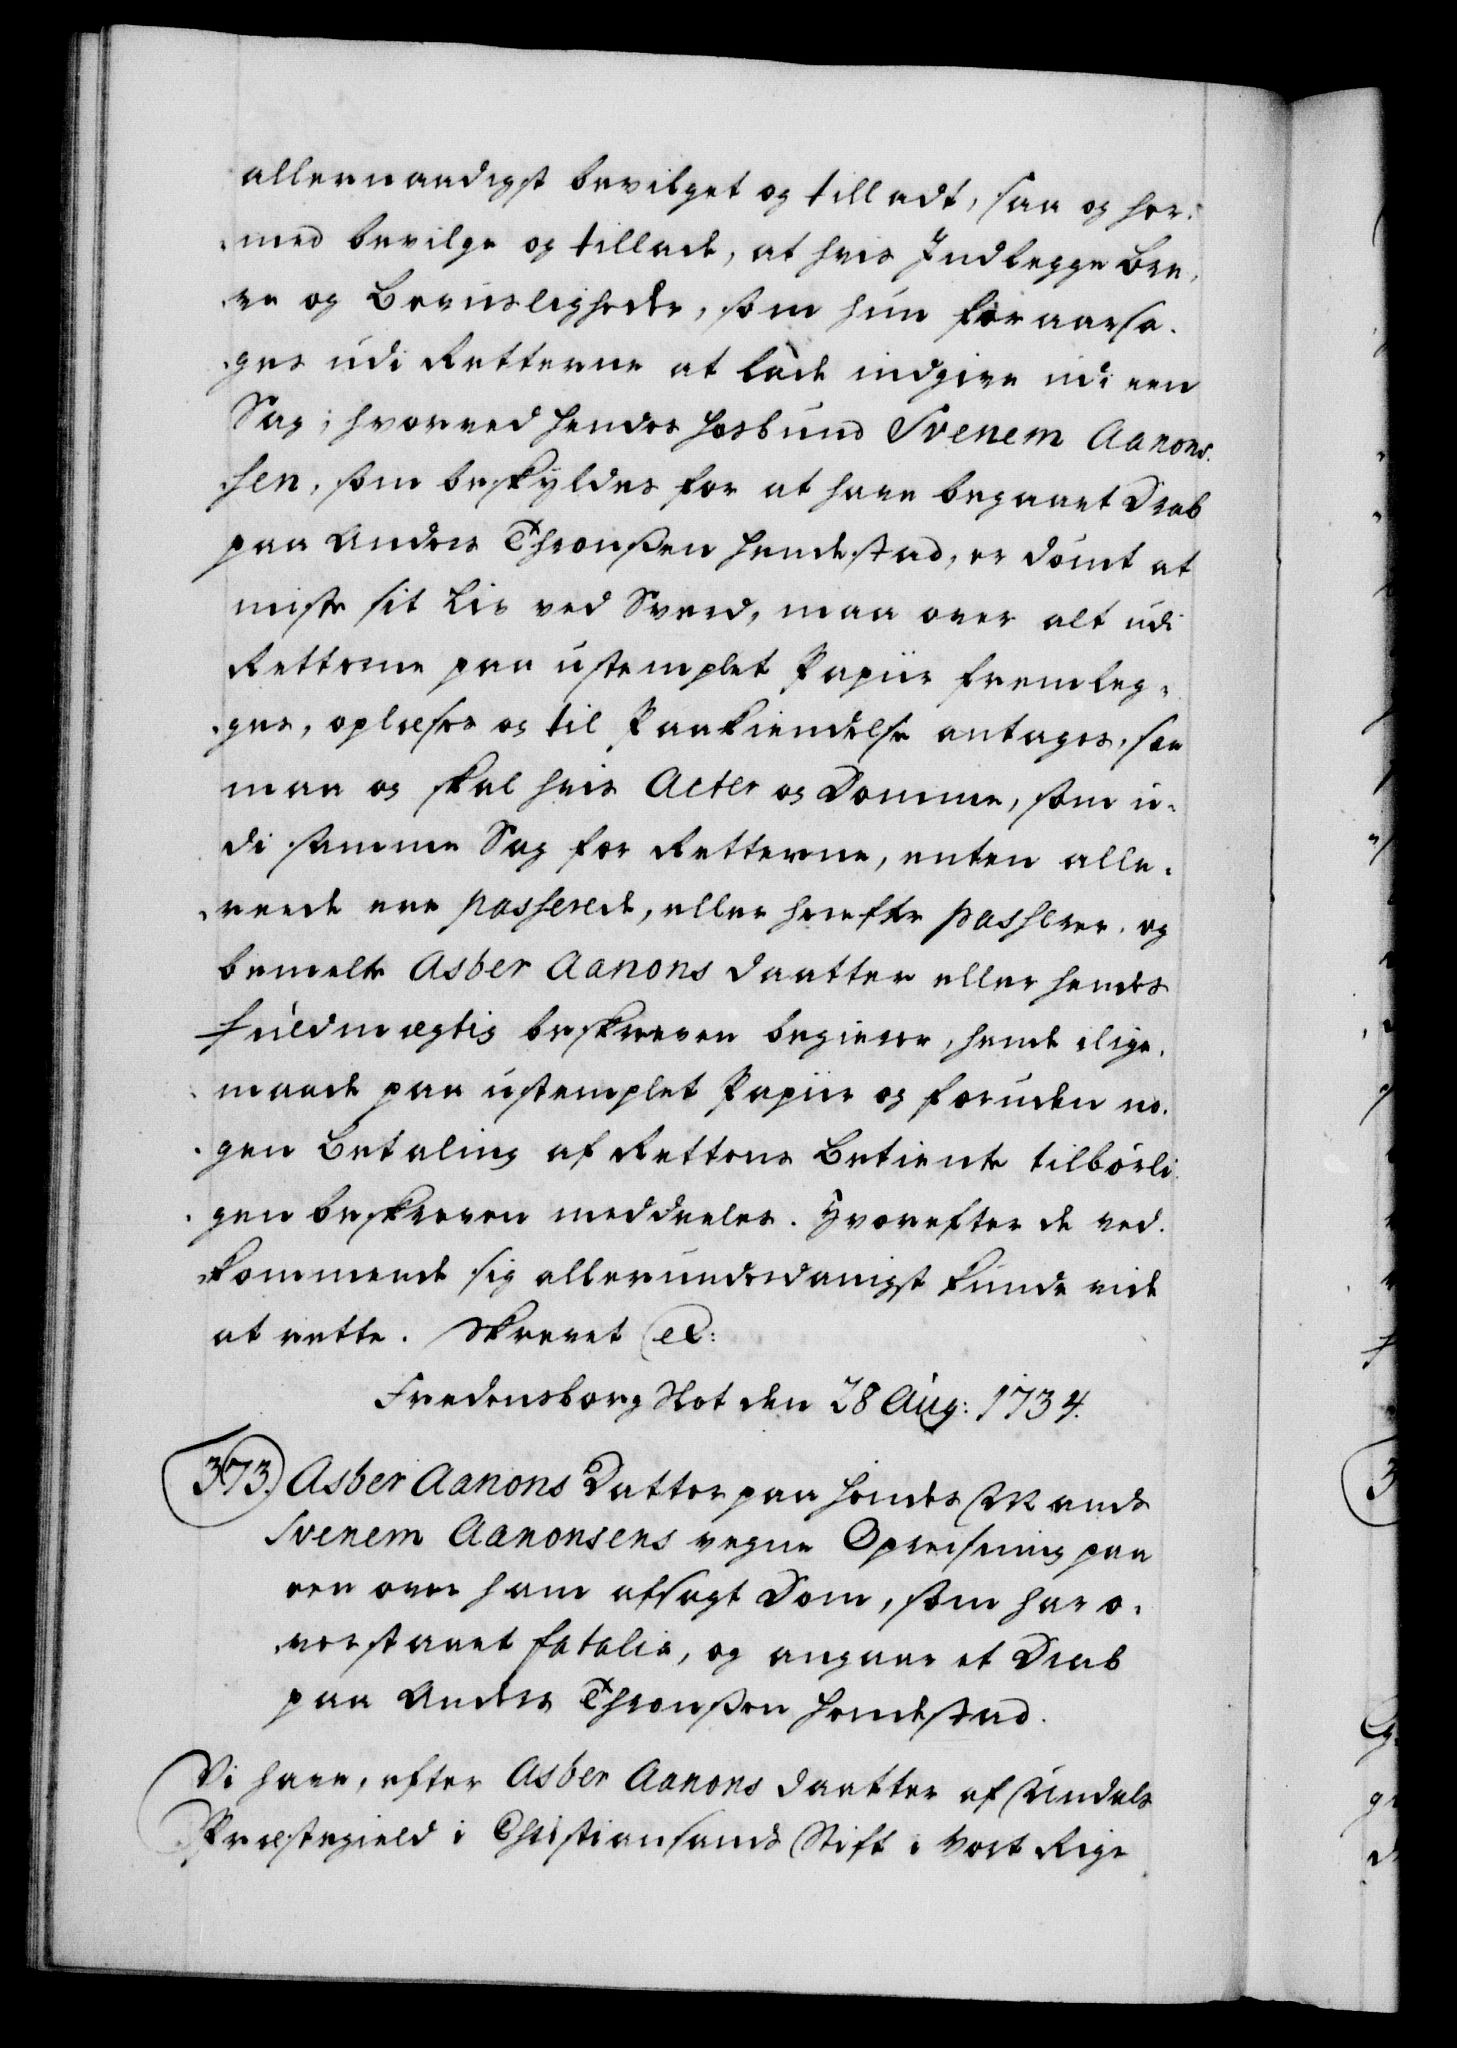 allernaadigst bevilget og tilladt, saa og her,
med bevilge og tillade, at hvis Indlegge Bre,
ve og Beviisligheder, som hun foraarsa,
ges udi Retterne at lade indgive udi een
Sag; hvorved hendes Hosbund Svenem Aanons,
sen, som beskyldes for at have begaaet Drab
paa Anders Thronßen Hendestad, er dömt at
miste sit Liv ved Sverd, maa over alt udi
Retterne paa ustemplet Papiir fremleg,
ges, oplæses og til Paakiendelse antages, saa
maa og skal hvis Acter og Domme, som u,
di samme Sag for Retterne, enten alle,
reede ere passerede, eller herefter passerer, og
bemelte Asber Aanons Daatter eller hendes
Fuldmægtig beskreven begierer, hende i lige,
maade paa ustemplet Papiir og foruden no,
gen Betaling af Rettens Betiente tilbörli,
gen beskreven meddeeles. Hvorefter de ved,
kommende sig allerunderdanigst kunde vide
at rette. Skrevet etc:
Fredensborg Slot den 28 Aug: 1734.
373. Asber Aanons Datter paa hendes Mands
Svenem Aanonsens vegne Opreisning paa
een over ham afsagt Dom, som har o,
verstaaet fatalia, og angaar et Drab
paa Anders Thronßen Hendestad.
Vi have, efter Asber Aanons Daatter af Undals
Præstegield i Christiansands Stift i Vort Rige